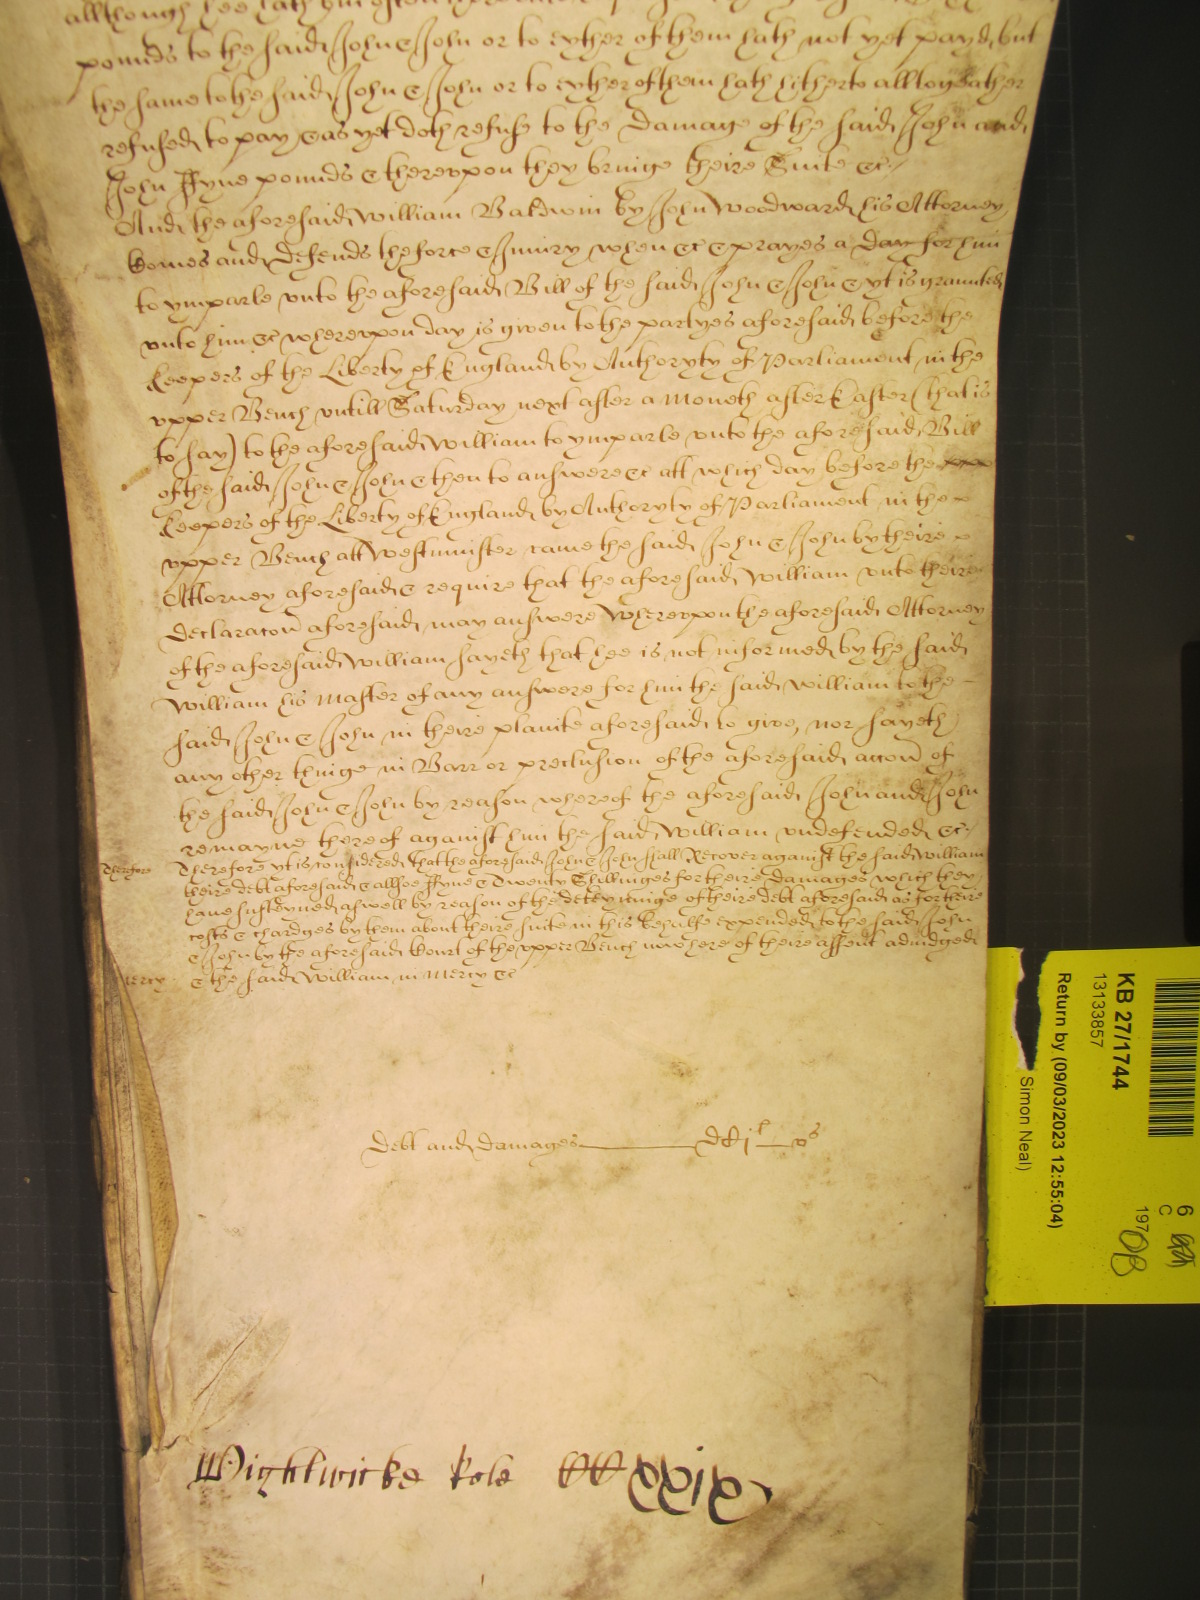 allthough hee hath bin often
pounds to the said John & John or to eyther of them hath not yet payd, but
the same to the said John & John or to eyther of them hath hitherto alltogeather
refused to pay & as yet doth refuse to the Damage of the said John and
John ffyve pounds & thereupon they bringe theire Suite &c
And the aforesaid William Baldwin by John Woodward his Attorney
Comes and Defends the force & Iniury when &c & prayes a Day for him
to ymparle unto the aforesaid Bill of the said John & John & yt is graunted
unto him &c whereupon day is given to the partyes aforesaid before the
Keepers of the Liberty of England by Authoryty of Parliament in the
upper Bench untill Saturday next after a Moneth after Easter (that is
to say) to the aforesaid William to ymparle unto the aforesaid Bill
of the said John & John & then to answere &c att which day before the
Keepers of the Liberty of England by Authoryty of Parliament in the
upper Bench att Westminster came the said John & John by theire
Attorney aforesaid & require that the aforesaid William unto theire
Declaracon aforesaid may answere Whereupon the aforesaid Attorney
of the aforesaid William sayeth that hee is not informed by the said
William his Master of any answere for him the said William to the
said John & John in theire plainte aforesaid to give, nor sayeth
any other thinge in Barr or preclusion of the aforesaid accon of
the said John & John by reason whereof the aforesaid John and John
remayne thereof against him the said William undefended &c
Therefore Therefore yt is considered that the aforesaid John & John shall Recover against the said William
theire debt aforesaid & allsoe ffyve & Twenty Shillinges for theire Damages which they
have susteyned aswell by reason of the deteyninge of theire debt aforesaid as for theire
costs & chardges by them about theire suite in this Behalfe expended to the said John
& John by the aforesaid Court of the upper Bench now here of theire assent adiudged
Mercy & the said William in Mercy &c
Debt and damages
Wightwicke Role
KB 27/1744
13133857
Return by (09/03/2023 12:55:04)
Simon Neal)
6
C
197